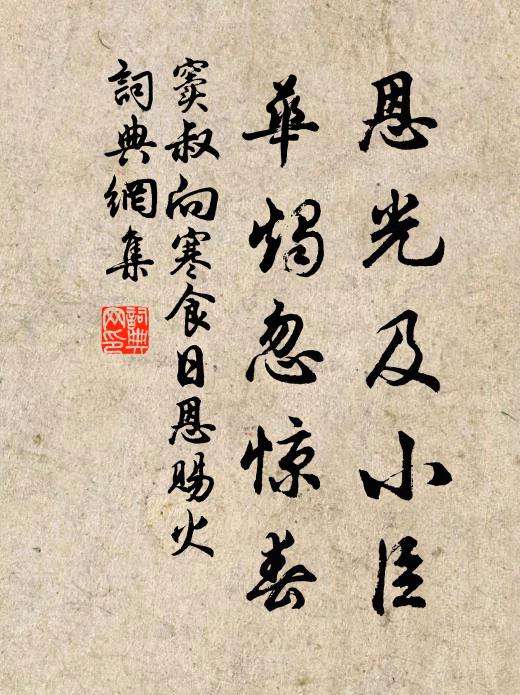 恩光及小臣
華燭忽惊春
窦叔向寒食日恩賜火
詞典網集
詞典
网印